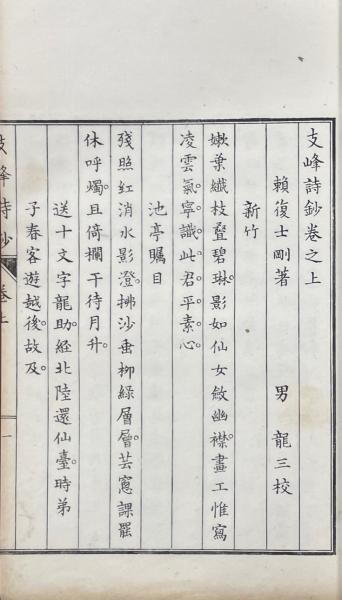 支峰詩鈔卷之上
賴復士剛著　男　龍三校
新竹
嫰葉纖枝疊碧琳。影如仙女斂幽襟。畫工惟寫
凌雲氣。寧識此君平素心。
池亭矚目
殘照紅消水影澄。拂沙垂柳綠層層。芸窻課罷
休呼燭。且倚欄干待月升。
送十文字龍助。經北陸還仙臺。時弟
子春客遊越後。故及。
支峰詩鈔　卷上　一